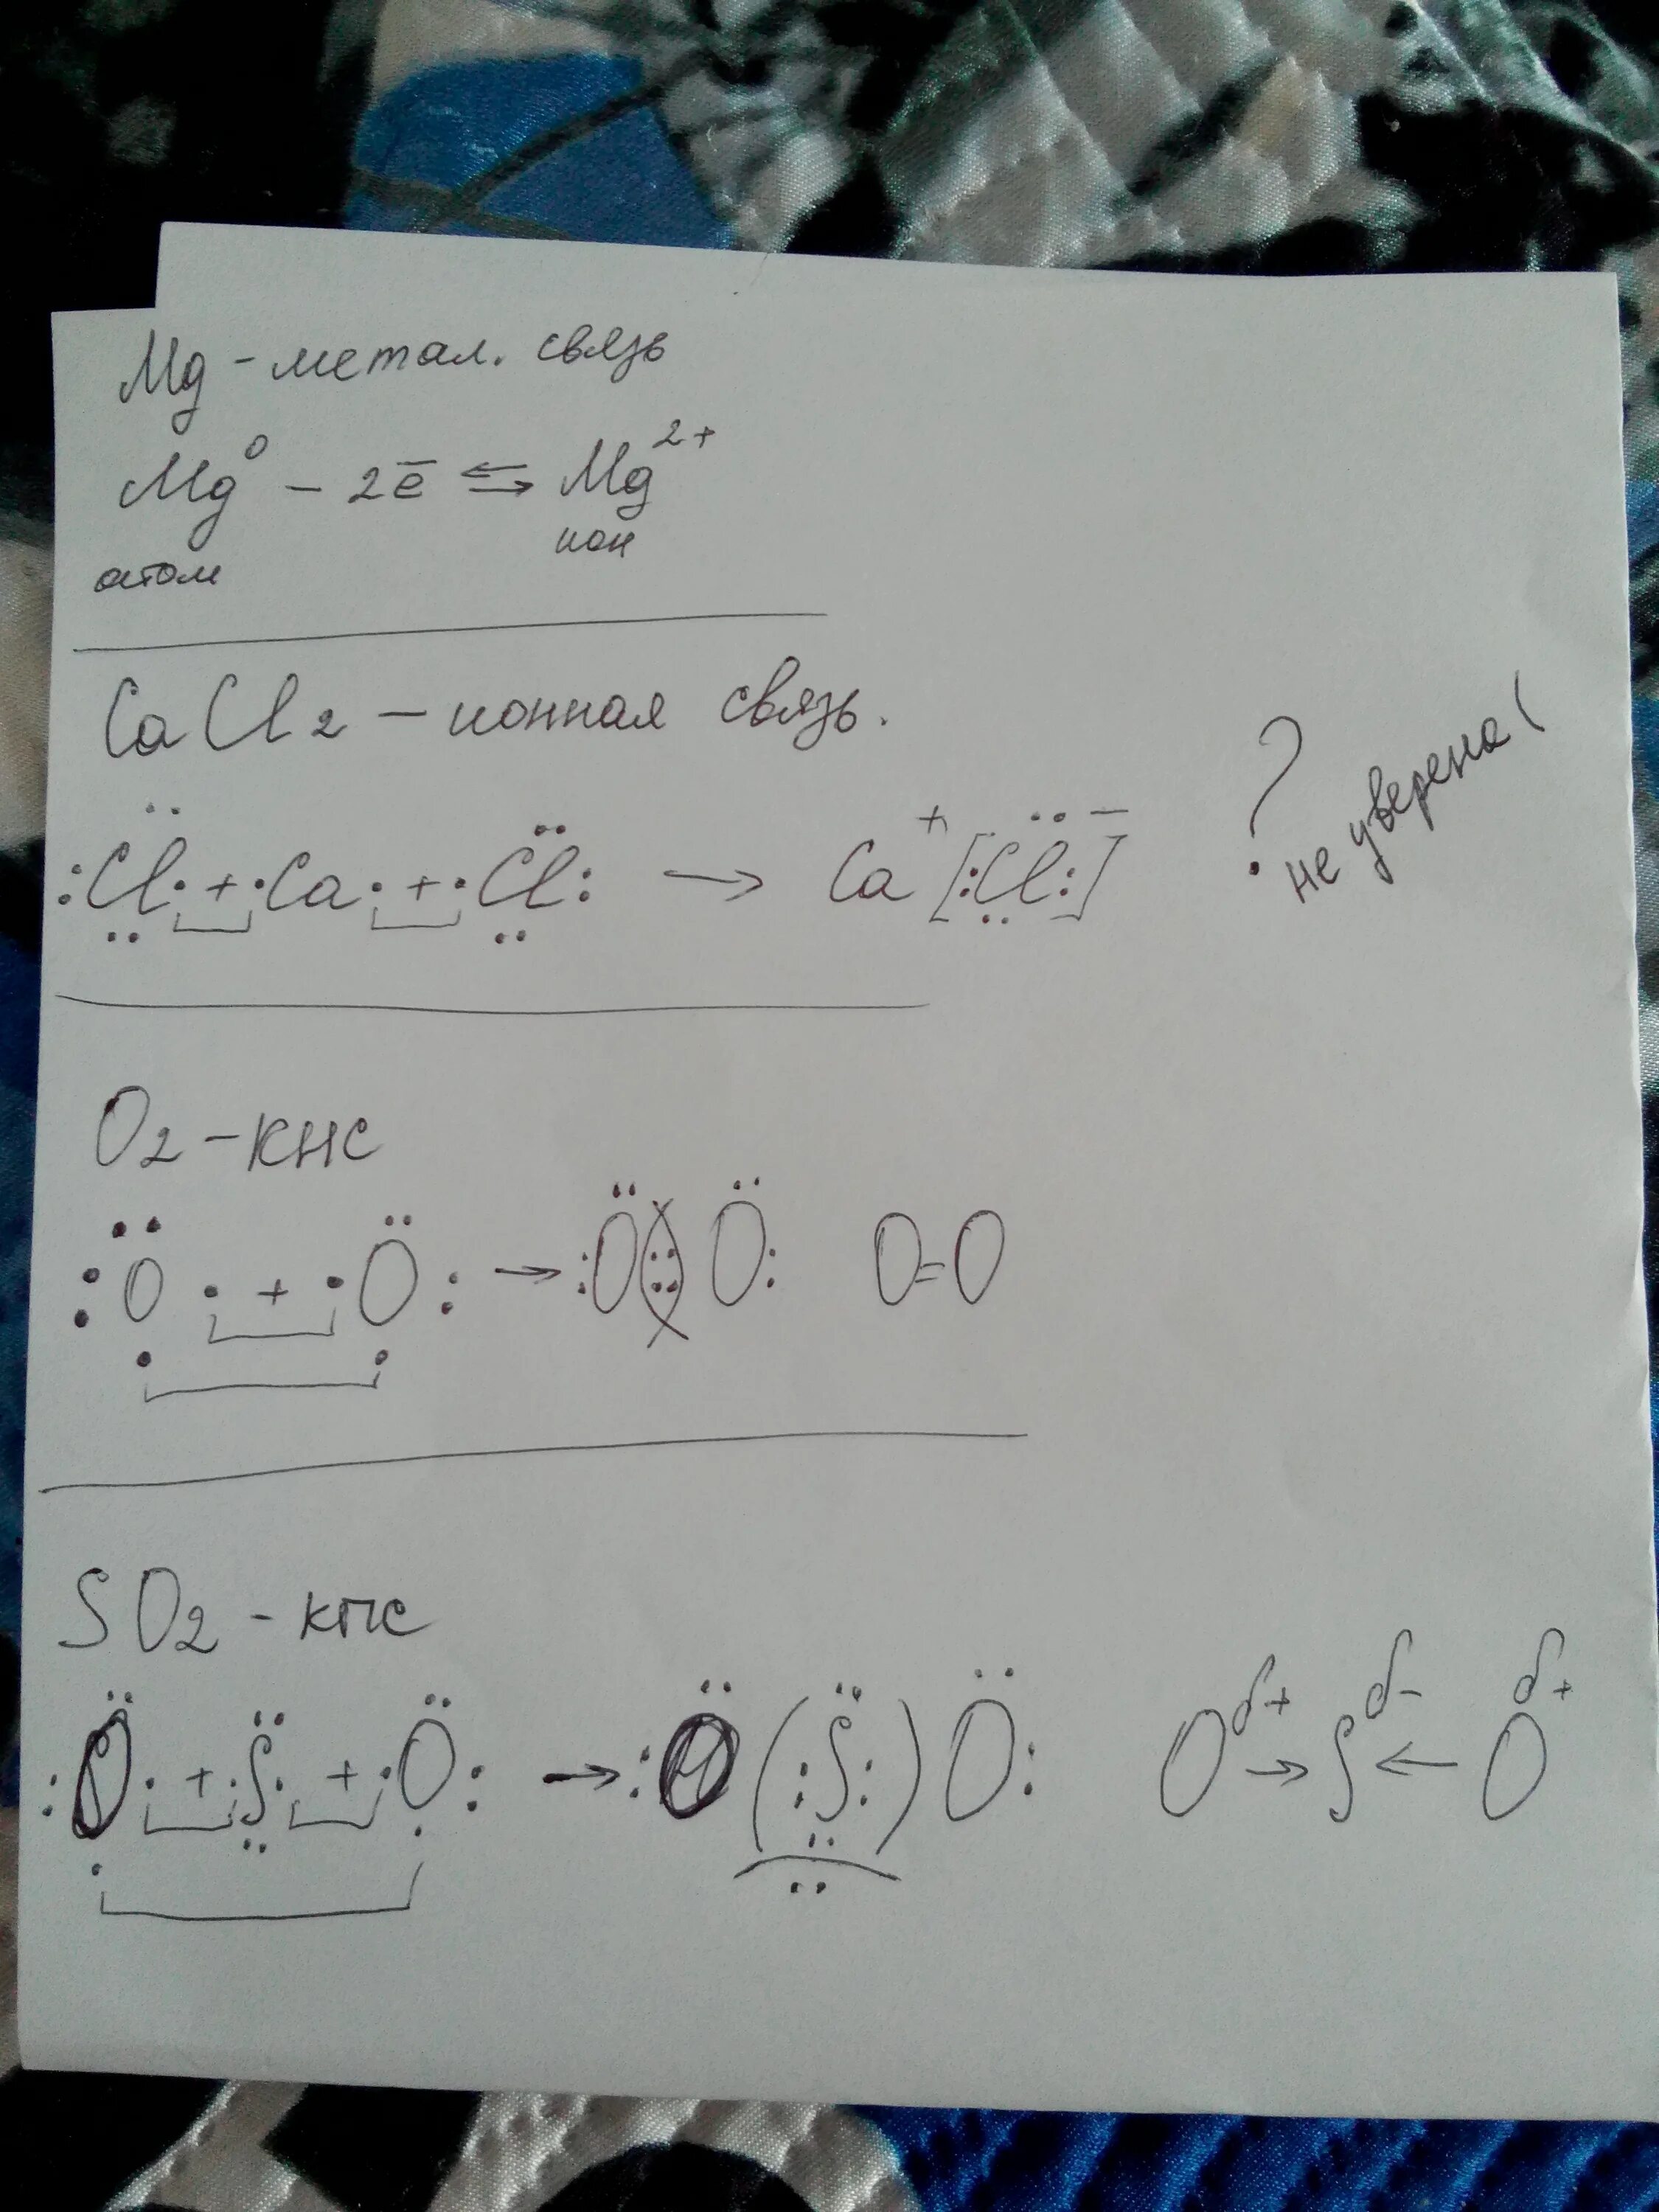 Mg - метал. связь
Mg⁰ - 2ē ⇆ Mg²⁺
атом ион
CaCl₂ - ионная связь.
:Cl· + ·Ca· + ·Cl: → Ca⁺ [:Cl:]⁻
? не уверена (
O₂ - КНС
:O· + ·O: → :O::O: O=O
SO₂ - кпс
:O· + ·S· + ·O: → :O(:S:)O: Oδ+ → Sδ- ← Oδ+